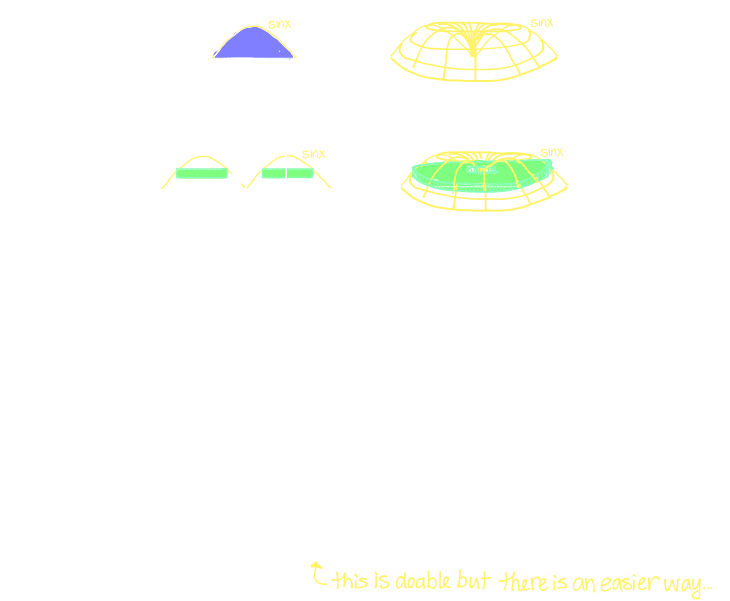 sinx
sinx
sinx
sinx
this is doable but there is an easier way...